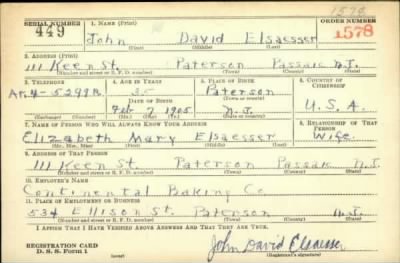 1578
SERIAL NUMBER 1. NAME (Print) ORDER NUMBER
449 John David Elsaesser 1578
(First) (Middle) (Last)
2. ADDRESS (Print)
111 Keen St. Paterson Passaic N.J.
(Number and street or R. F. D. number) (Town) (County) (State)
3. TELEPHONE 4. AGE IN YEARS 5. PLACE OF BIRTH 6. COUNTRY OF CITIZENSHIP
35 Paterson
DATE OF BIRTH (Town or county)
Feb 7 1905 N.J. U.S.A.
(Exchange) (Number) (Mo.) (Day) (Yr.) (State or country)
7. NAME OF PERSON WHO WILL ALWAYS KNOW YOUR ADDRESS 8. RELATIONSHIP OF THAT PERSON
Elizabeth Mary Elsaesser Wife
(Mr., Mrs., Miss) (First) (Middle) (Last)
9. ADDRESS OF THAT PERSON
111 Keen St. Paterson Passaic N.J.
(Number and street or R. F. D. number) (Town) (County) (State)
10. EMPLOYER'S NAME
Continental Baking Co
11. PLACE OF EMPLOYMENT OR BUSINESS
534 Ellison St. Paterson N.J.
(Number and street or R. F. D. number) (Town) (County) (State)
I AFFIRM THAT I HAVE VERIFIED ABOVE ANSWERS AND THAT THEY ARE TRUE.
REGISTRATION CARD
D. S. S. Form 1 (over) John David Elsaesser
(Registrant's signature)